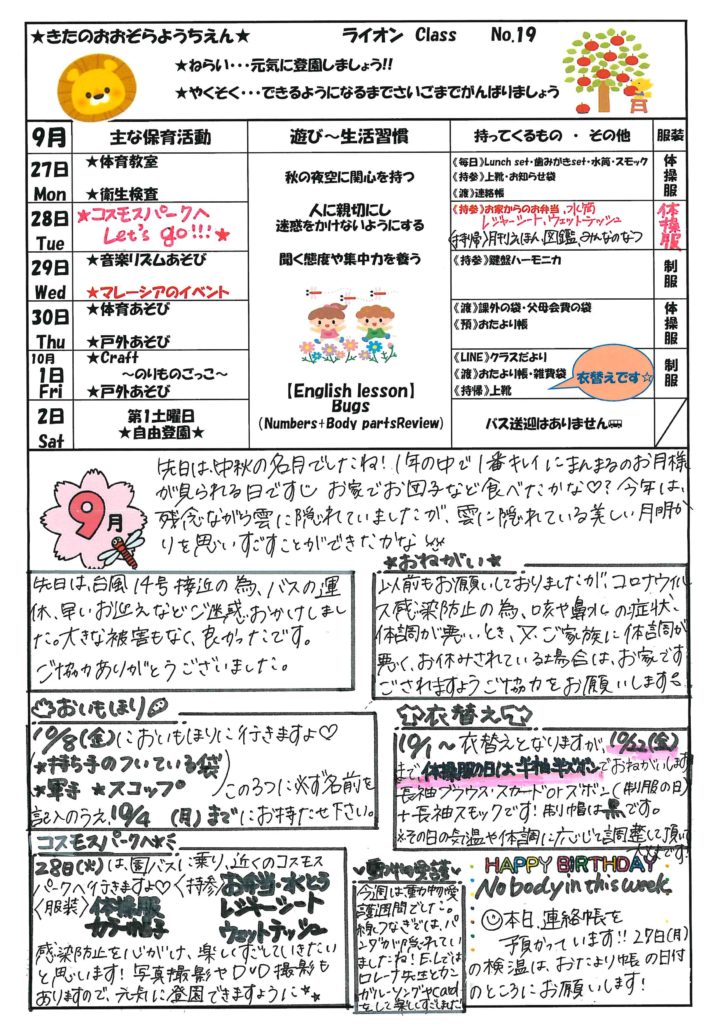 ★きたのおおぞらようちえん★ ライオン Class No.19
★ねらい・・・元気に登園しましょう!!
★やくそく・・・できるようになるまでさいごまでがんばりましょう
9月 主な保育活動 遊び～生活習慣 持ってくるもの ・ その他 服装
27日 Mon
★体育教室
★衛生検査
28日 Tue
★コスモスパークへ
Let's go!!!★
29日 Wed
★音楽リズムあそび
★マレーシアのイベント
30日 Thu
★体育あそび
★戸外あそび
10月 1日 Fri
★Craft
～のりものごっこ～
★戸外あそび
2日 Sat
第1土曜日
★自由登園★
秋の夜空に関心を持つ
人に親切にし
迷惑をかけないようにする
聞く態度や集中力を養う
【English lesson】
Bugs
(Numbers+Body partsReview)
《毎日》Lunch set・歯みがきset・水筒・スモック
《持参》上靴・お知らせ袋
《渡》連絡帳
体操服
《持参》お家からのお弁当、水筒
レジャーシート、ウェットティッシュ
《持帰》月刊えほん、図鑑、みんなのなつ
体操服
《持参》鍵盤ハーモニカ
制服
《渡》課外の袋・父母会費の袋
《預》おたより帳
体操服
《LINE》クラスだより
《渡》おたより帳・雑費袋
《持帰》上靴
衣替えです☆
制服
バス送迎はありません
9月
先日は、中秋の名月でしたね！1年の中で1番キレイにまんまるのお月様
が見られる日です お家でお団子など食べたかな♡？今年は、
残念ながら雲に隠れていましたが、雲に隠れている美しい月明か
りを思いすごすことができたかな
先日は、台風14号接近の為、バスの運
休、早いお迎えなどご迷惑おかけしまし
た。大きな被害もなく、良かったです。
ご協力ありがとうございました。
★おねがい★
以前もお願いしておりましたが、コロナウイル
ス感染防止の為、咳や鼻水の症状、
体調が悪いとき、又ご家族に体調が
悪く、お休みされている場合は、お家です
ごされますようご協力をお願いします。
おいもほり
10/8(金)においもほりに行きますよ♡
★持ち手のついている袋
★軍手 ★スコップ
この3つに必ず名前を
記入のうえ、10/4 (月)までにお持たせ下さい。
衣替え
10/1～衣替えとなりますが、10/22(金)
まで、体操服の日は半袖半ズボンでおねがいします
長袖ブラウス・スカートorズボン(制服の日)
+長袖スモックです！制帽は黒です。
*その日の気温や体調に応じて調整して頂いて
大丈夫です！
コスモスパークへ
28日(火)は、園バスに乗り、近くのコスモス
パークへ行きますよ♡〈持参〉お弁当・水とう
〈服装〉体操服 レジャーシート
カラー帽子 ウェットティッシュ
感染防止を心がけ、楽しくすごしていきたい
と思います！写真撮影やDVD撮影も
ありますので、元気に登園できますように★
♥動物愛護♥
今週は動物愛
護週間でした。
線つなぎでは、パ
ンダが隠れてい
ましたね！E.Lでは
ロレーナ先生とカン
ガルーソングやcard
をして楽しくすごしました！
HAPPY BIRTHDAY
Nobody in this week.
本日、連絡帳を
預かっています!! 27日(月)
の検温は、おたより帳の日付
のところにお願いします！